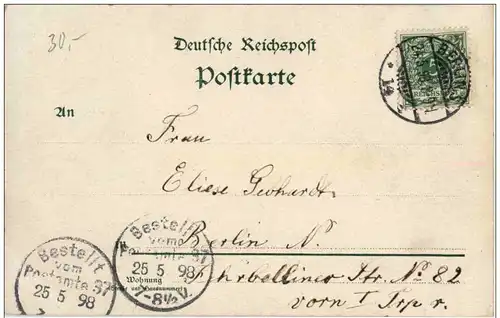 30,-
Deutsche Reichspost
Postkarte
BERLIN
An
Frau
Eliese Gerhardt
Berlin N.
Fehrbelliner Str. No 82
vorn I Trp r.
Wohnung
Bestellt
vom
Postamte 37
25 5 98
7-8½V.
Bestellt
vom
Postamte 37
25 5 98